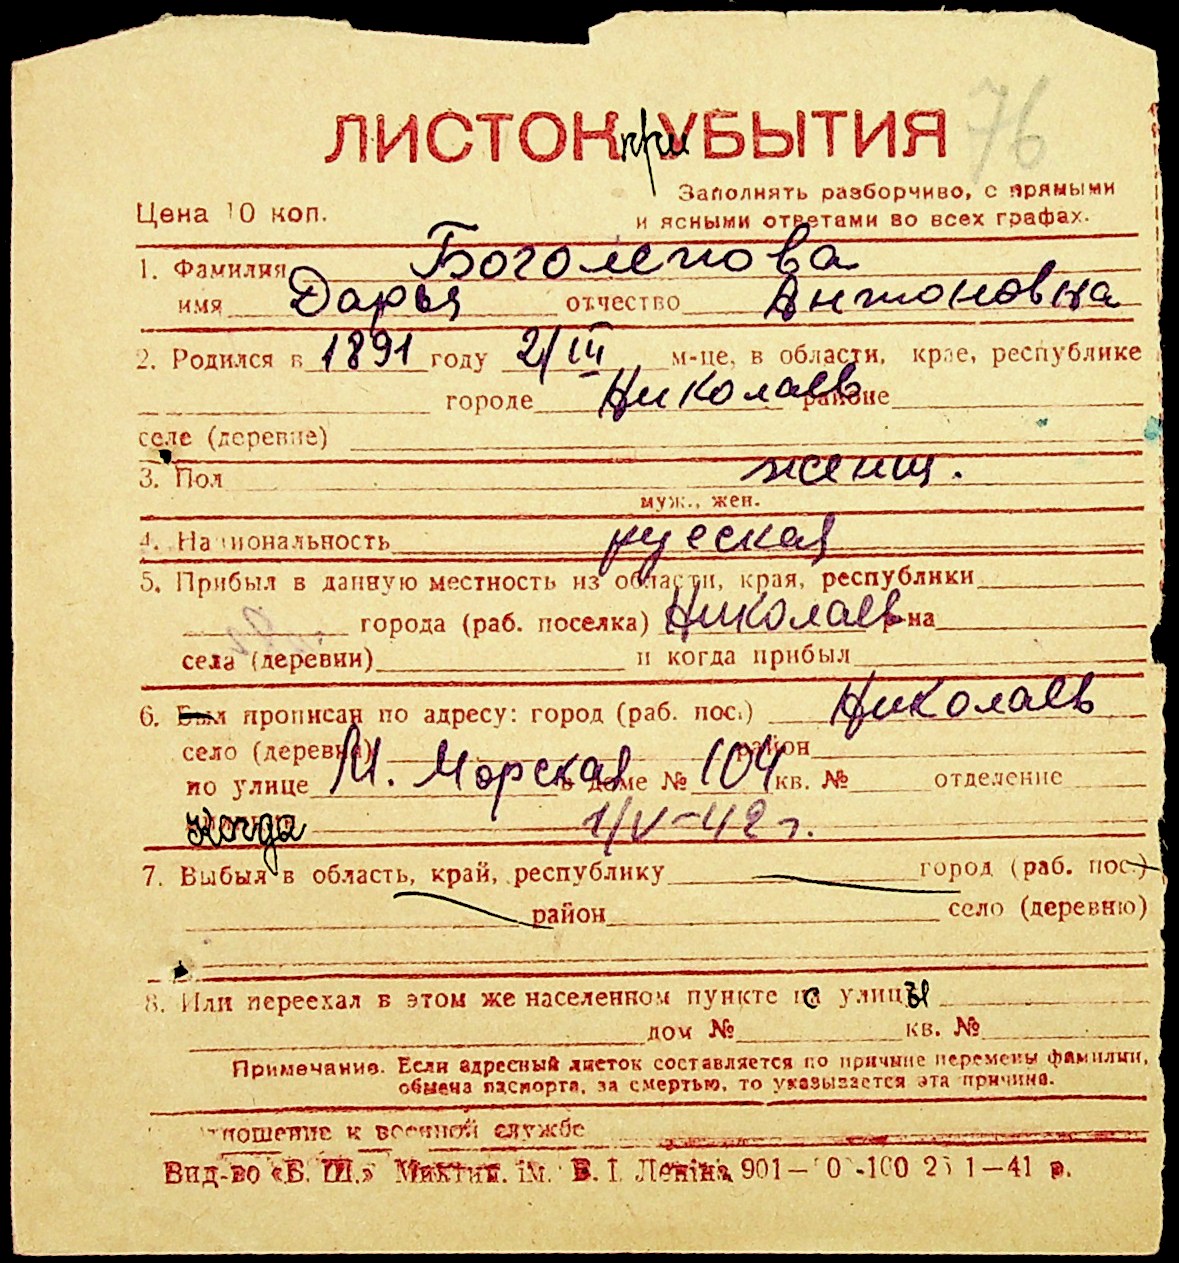 ЛИСТОК при УБЫТИЯ 76
Заполнять разборчиво, с прямыми
Цена 10 коп. и ясными ответами во всех графах.
1. Фамилия Боголепова
имя Дарья отчество Антоновна
2. Родился в 1891 году 2/III м-це, в области, крае, республике
городе Николаев районе
селе (деревне)
3. Пол женщ.
муж., жен.
4. Национальность русская
5. Прибыл в данную местность из области, края, республики
города (раб. поселка) Николаев р-на
села (деревни) и когда прибыл
6. Был прописан по адресу: город (раб. пос.) Николаев
село (деревня) район
по улице М. Морская в доме № 104 кв. № отделение
Когда 1/V-42 г.
7. Выбыл в область, край, республику город (раб. пос.)
район село (деревню)
8. Или переехал в этом же населенном пункте с улицы
дом № кв. №
Примечание. Если адресный листок составляется по причине перемены фамилии,
обмена паспорта, за смертью, то указывается эта причина.
тношение к военной службе
Вид-во «Б. Ш.» Миктип. ім. В. І. Леніна 901— 0 -100 1—41 р.